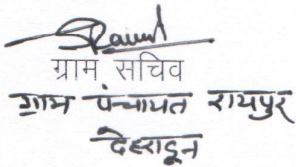 ग्राम सचिव
ग्राम पंचायत रायपुर
देहरादून